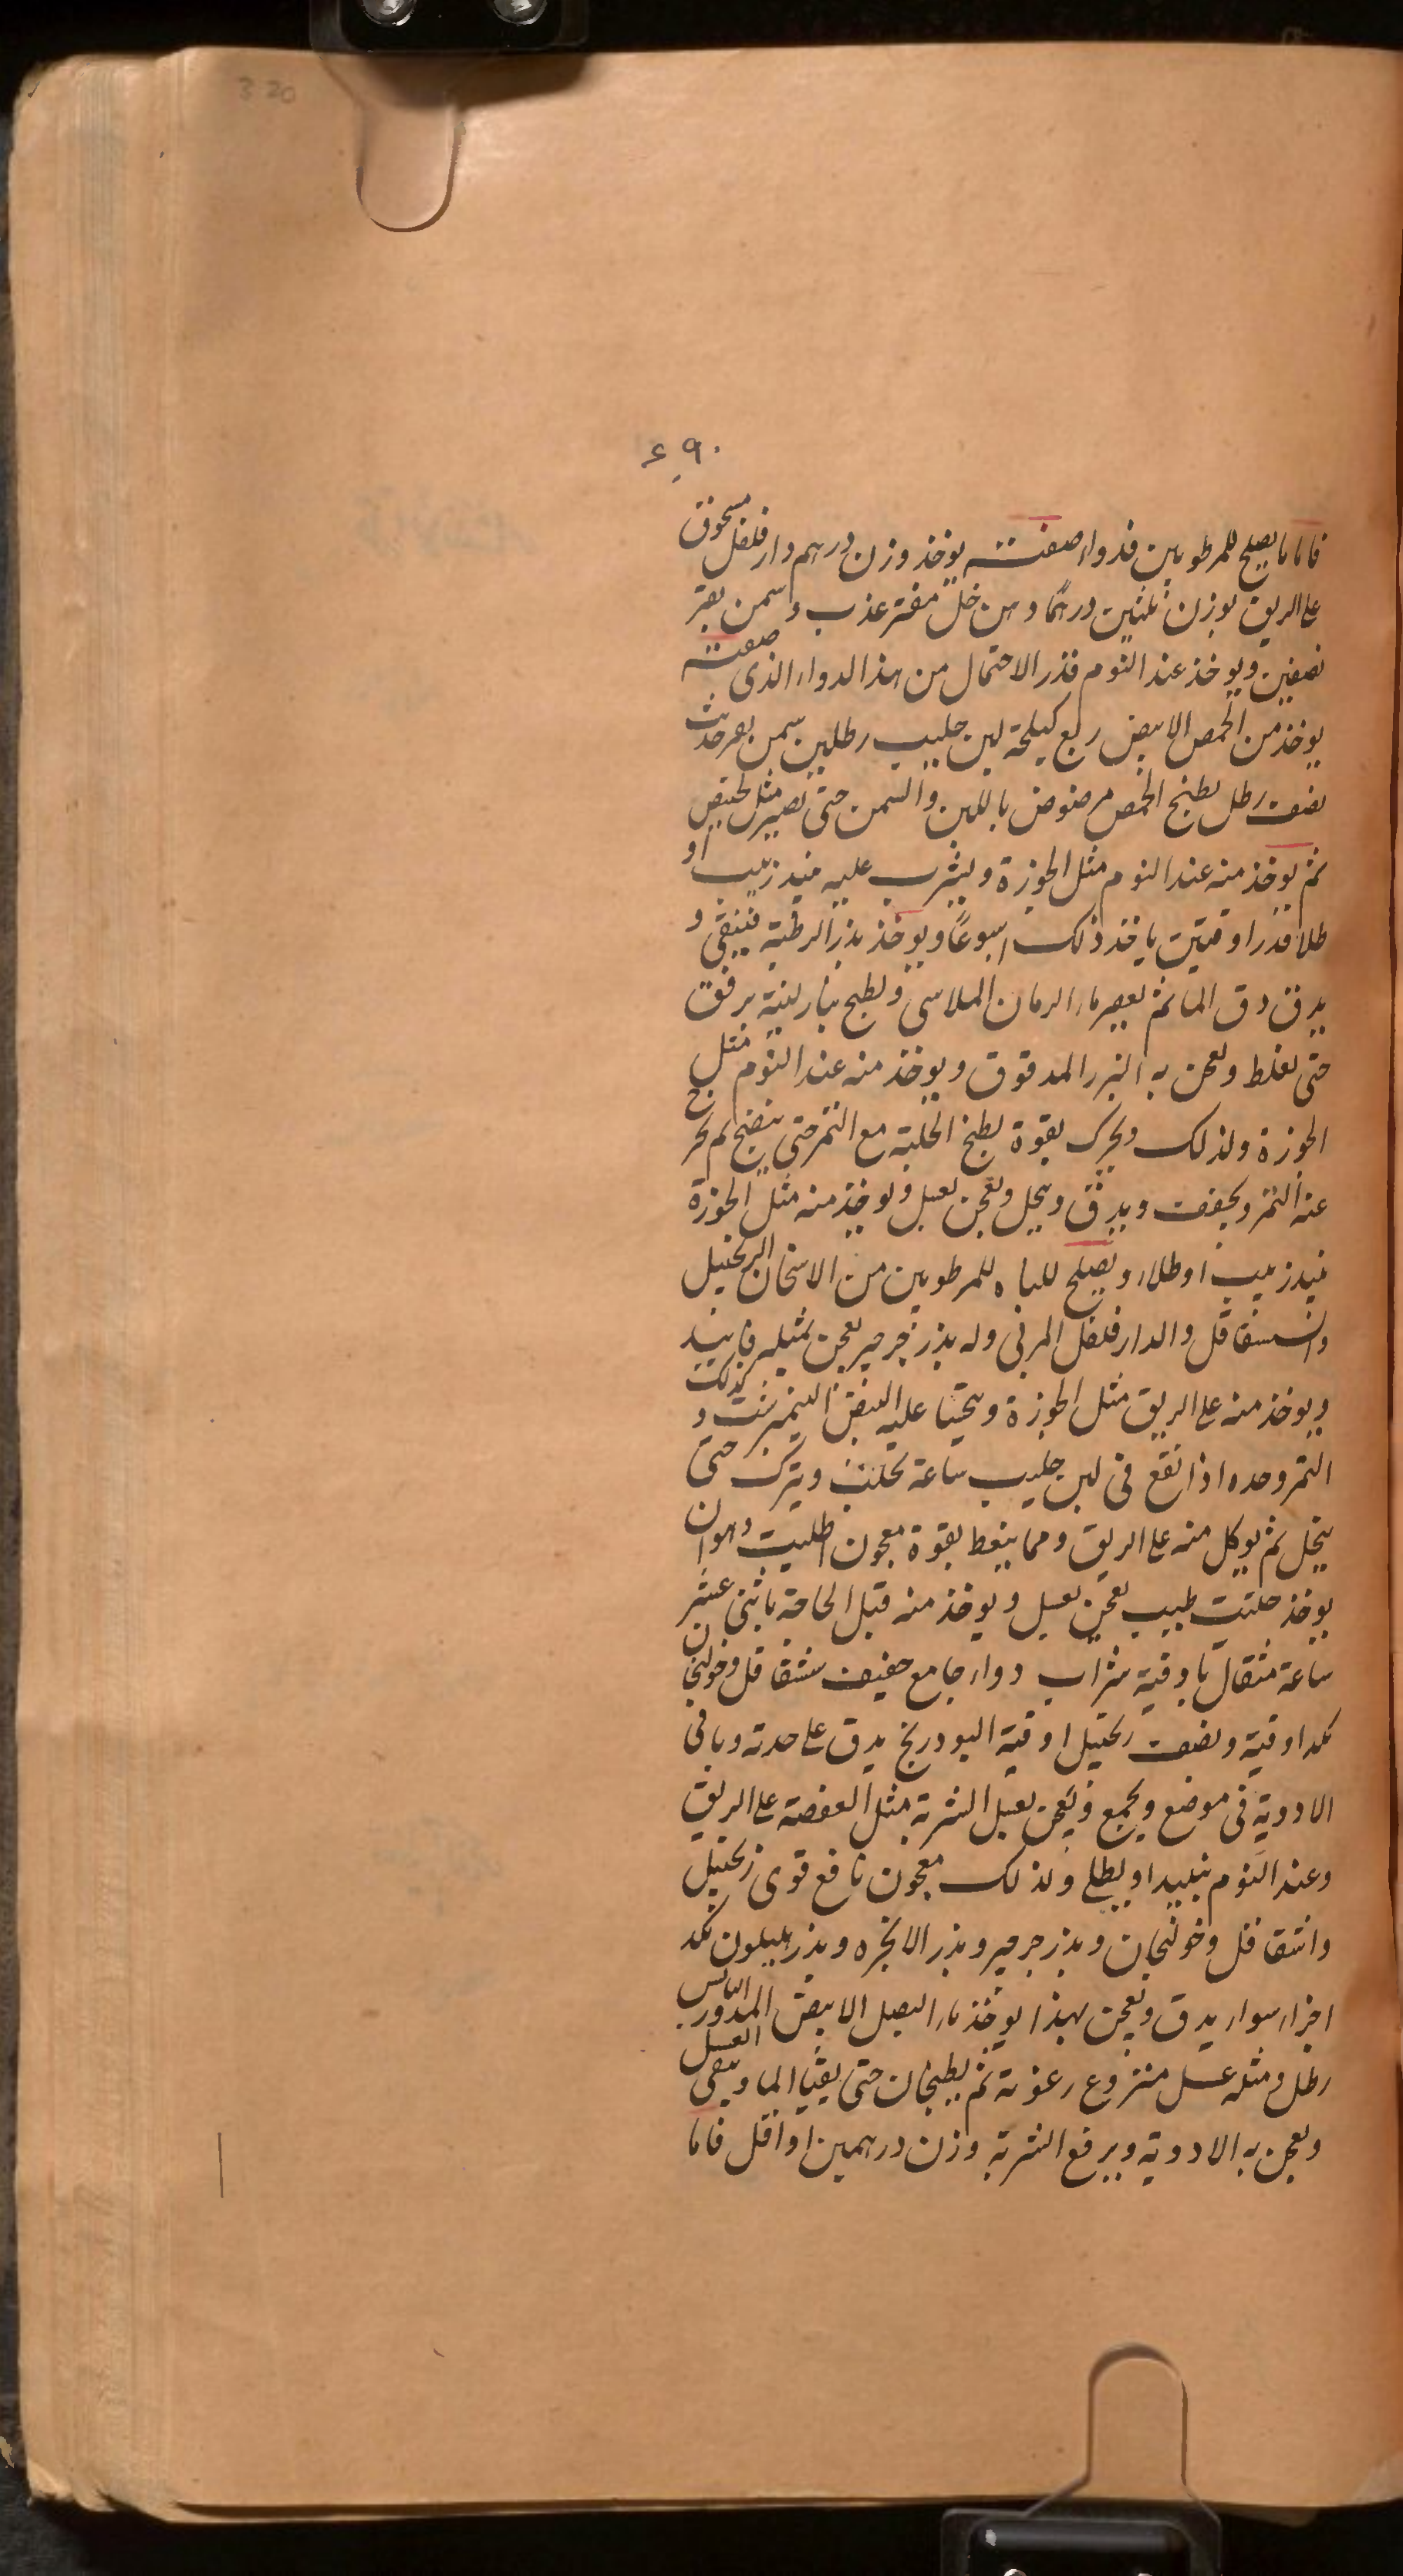 320
٤٩٠
فاما ما يصلح للمرطوبين فدواء صفته يوخذ وزن درهم دار فلفل مسحوق
على الريق بوزن ثلثين درهما دهن خل مفتر عذب وسمن بقر
نصفين ويوخذ عند النوم قدر الاحتمال من هذا الدواء الذى صفته
يوخذ من الحمص الابيض ربع كيلجة لبن حليب رطلين سمن بقر حديث
نصف رطل يطبخ الحمص مرضوض باللبن والسمن حتى تصير مثل الخبيص
ثم يوخذ منه عند النوم مثل الجوزة ويشرب عليه نبيذ زبيب او
طلا قدر اوقيتين ياخذ ذلك اسبوعًا ويوخذ بذر الرطبة فينقى و
يدق دق الما ثم يعصر ماء الرمان الملاسى ويطبخ بنار لينة برفق
حتى يغلظ ويعجن به البزر المدقوق ويوخذ منه عند النوم مثل
الجوزة ولذلك ويحرك بقوة يطبخ الحلبة مع التمر حتى ينضج ثم يخرج
عنه التمر ويجفف ويدق وينخل ويعجن بعسل ويوخذ منه مثل الجوزة
نبيذ زبيب او طلاء ويصلح للباه للمرطوبين من الاسخان الزنجبيل
والشقاقل والدار فلفل المربى وله بذر جرجير يعجن بمثليه فانيد
ويوخذ منه على الريق مثل الجوزة ويتحسا عليه البيض النيمبرشت وكذلك
التمر وحده اذا نقع فى لبن حليب ساعة تحلب ويترك حتى
ينحل ثم يوكل منه على الريق ومما ينعظ بقوة معجون الحلتيت وهو ان
يوخذ حلتيت طيب يعجن بعسل ويوخذ منه قبل الحاجة باثنى عشر
ساعة مثقال باوقية شراب دواء جامع خفيف شقاقل وخولنجان
مكد اوقية ونصف زنجبيل اوقية البودريخ يدق على حدته وباقى
الادوية فى موضع ويجمع ويعجن بعسل الشربة مثل العفصة على الريق
وعند النوم بنبيد او بطلى ولذلك معجون نافع قوى زنجبيل
واشقاقل وخولنجان وبذر جرجير وبذر الانجره وبذر هليون مكد
اجزاء سواء يدق ويعجن بهذا يوخذ ماء البصل الابيض المدور اليابس
رطل ومثله عسل منزوع رغوته ثم يطبخان حتى يفنا الما ويبقى العسل
ويعجن به الادوية ويرفع الشربة وزن درهمين او اقل فاما